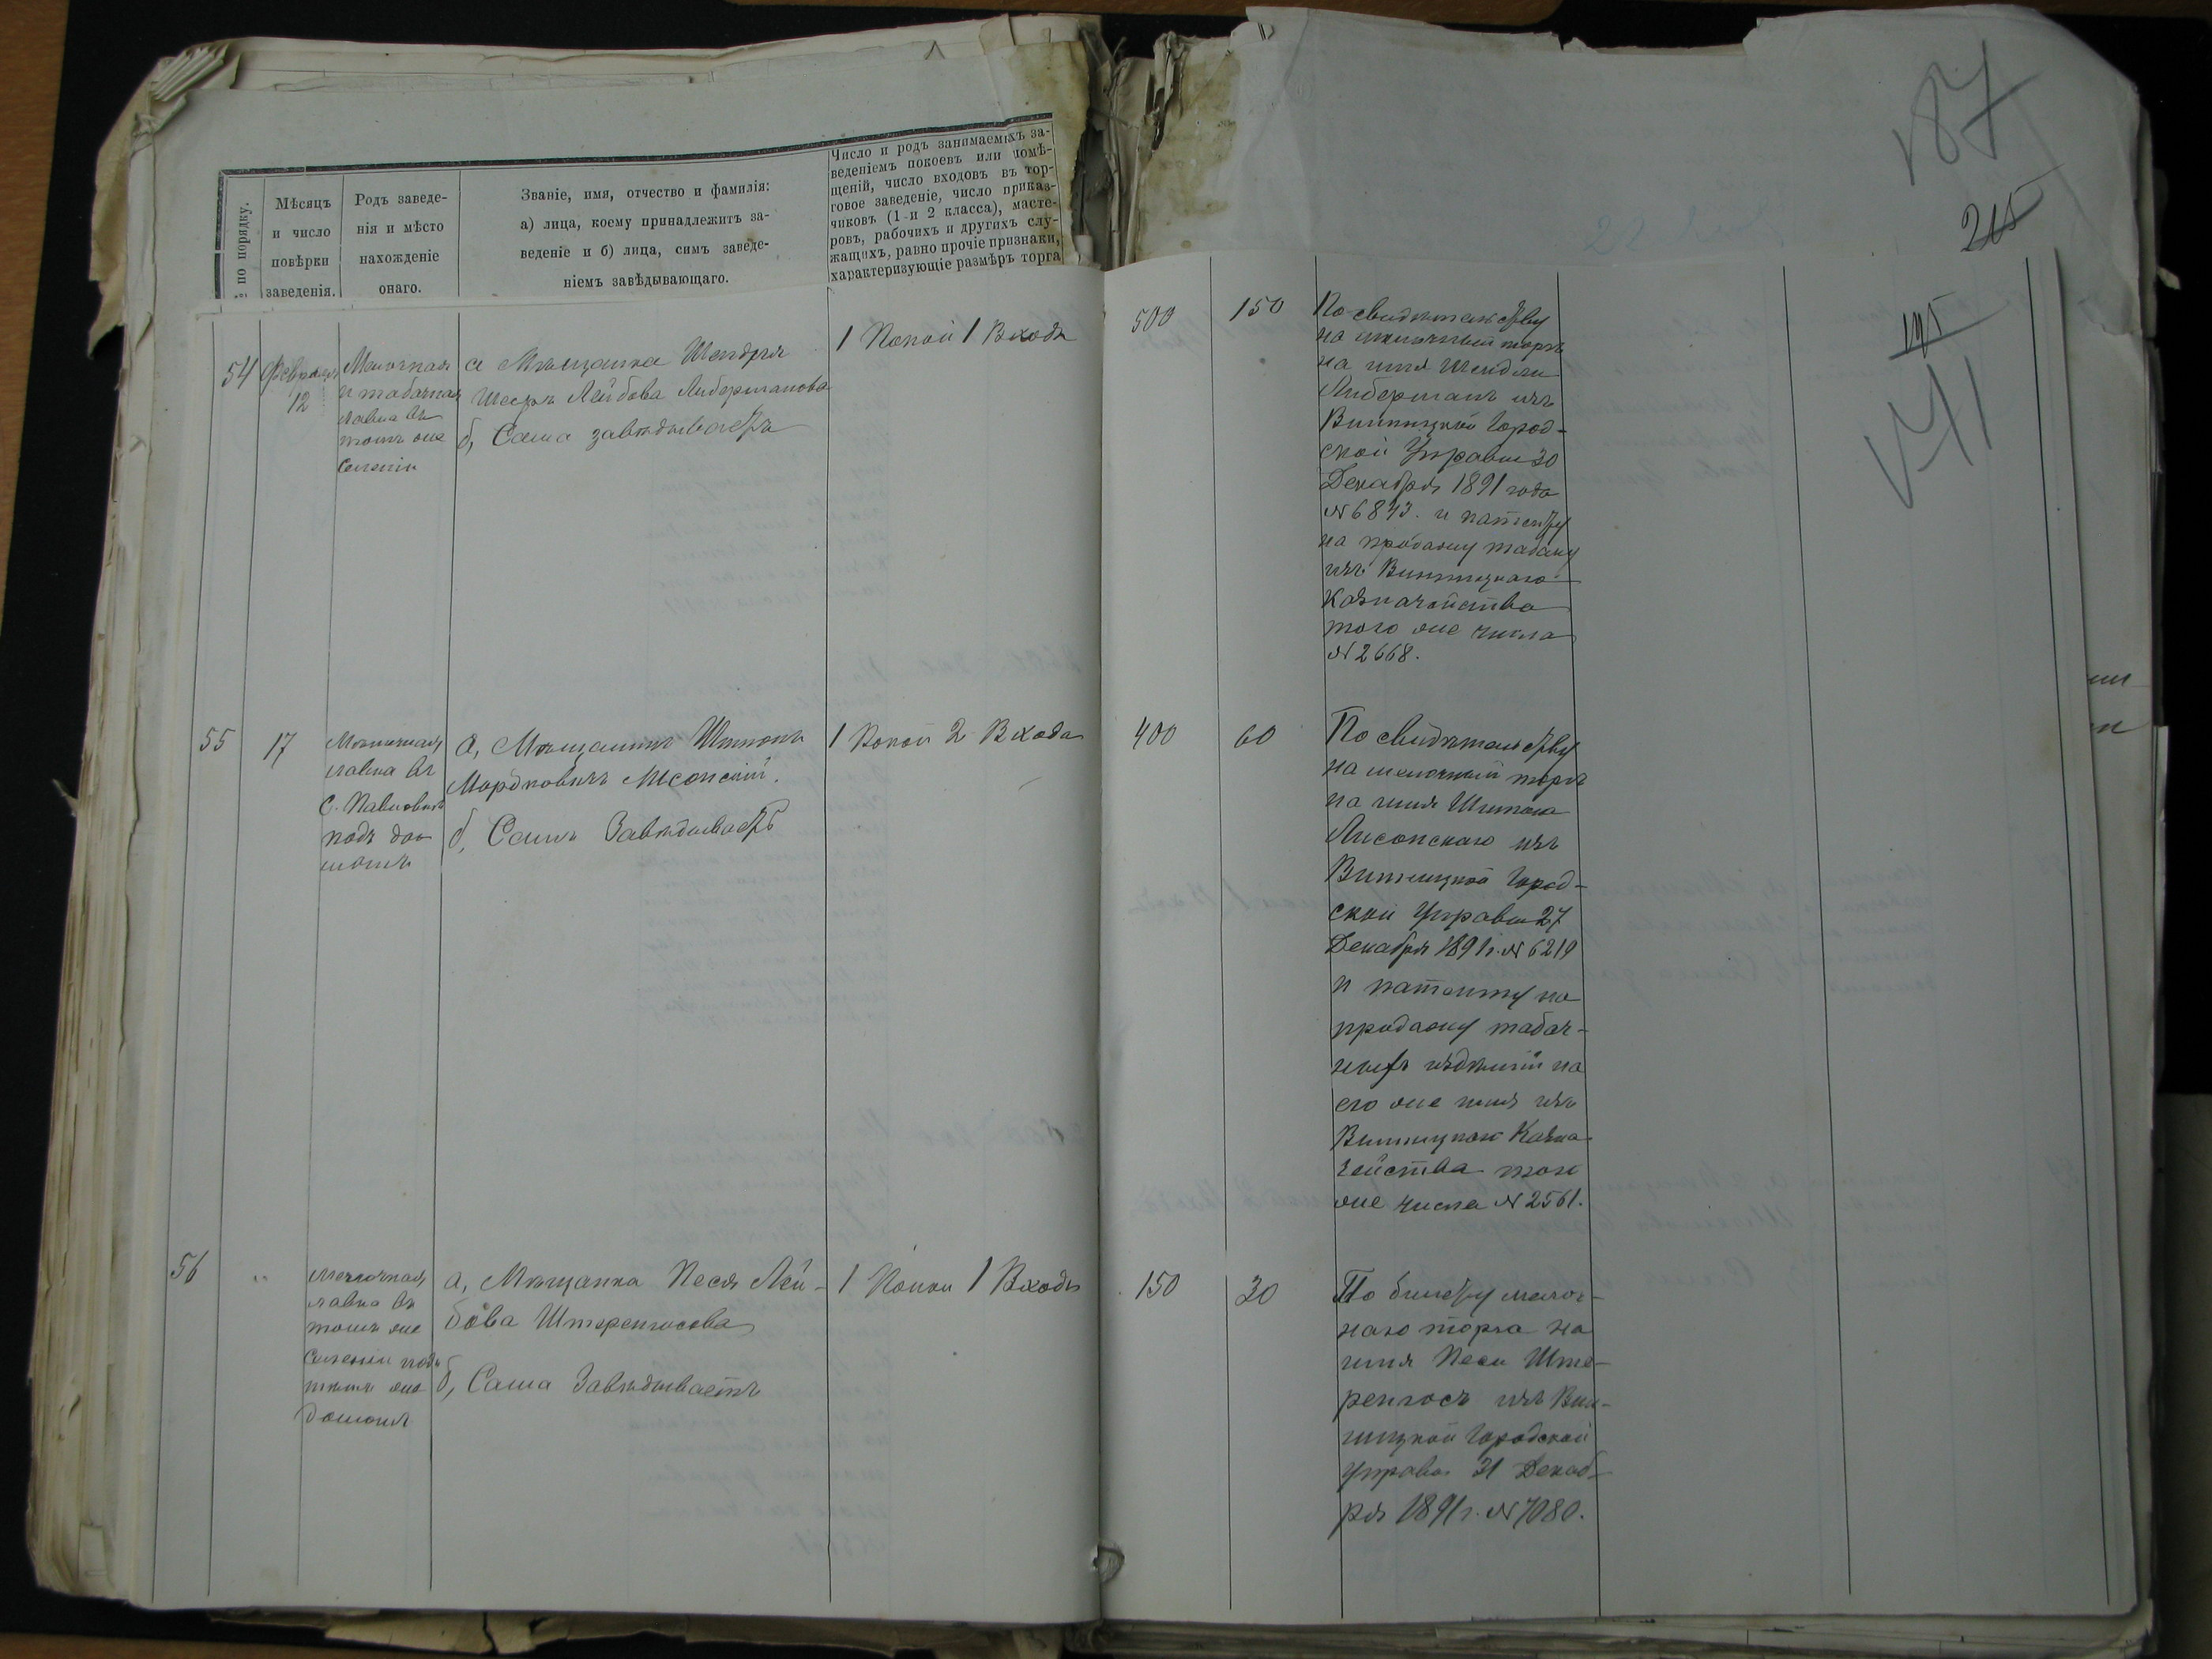 187
215
195
171
№ по порядку.
Мѣсяцъ
и число
повѣрки
заведенія.
Родъ заведе-
нія и мѣсто
нахожденіе
онаго.
Званіе, имя, отчество и фамилія:
а) лица, коему принадлежитъ за-
веденіе и б) лица, симъ заведе-
ніемъ завѣдывающаго.
Число и родъ занимаемыхъ за-
веденіемъ покоевъ или помѣ-
щеній, число входовъ въ тор-
говое заведеніе, число приказ-
чиковъ (1 и 2 класса), масте-
ровъ, рабочихъ и другихъ слу-
жащихъ, равно прочіе признаки,
характеризующіе размѣръ торга
54
Февраля
12
Мелочная
и табачная
лавка въ
томъ же
селеніи
а Мѣщанка Шендля
Лейбова Либерманова
б, Сама завѣдываетъ
1 Покой 1 Входъ
500
150
По свидѣтельству
на мелочный торгъ
на имя Шендли
Либерманъ изъ
Винницкой Город-
ской Управы 30
Декабря 1891 года
№ 6843. и патенту
на продажу табаку
изъ Винницкаго
Казначейства
того же числа
№ 2668.
55
17
Мелочная
лавка въ
с.
подъ до-
момъ
а, Мѣщанинъ Шимонъ
Мордковичъ Лисонскій.
б, Самъ Завѣдываетъ
1 Покой 2 Входа
400
60
По свидѣтельству
на мелочный торгъ
на имя Шимона
Лисонскаго изъ
Винницкой Город-
ской Управы 27
Декабря 1891 г. № 6219
и патенту на
продажу табач-
ныхъ издѣлій на
его же имя изъ
Винницкаго Казна-
чейства того
же числа № 2561.
56
"
Мелочная
лавка въ
томъ же
селеніи подъ
тѣмъ же
домомъ
а, Мѣщанка Песя Лей-
бова Штеренгосова
б, Сама Завѣдываетъ
1 Покой 1 Входъ
150
30
По билету мелоч-
наго торга на
имя Песи Ште-
ренгосъ изъ Вин-
ницкой Городской
Управы 31 Декаб-
ря 1891 г. № 7080.